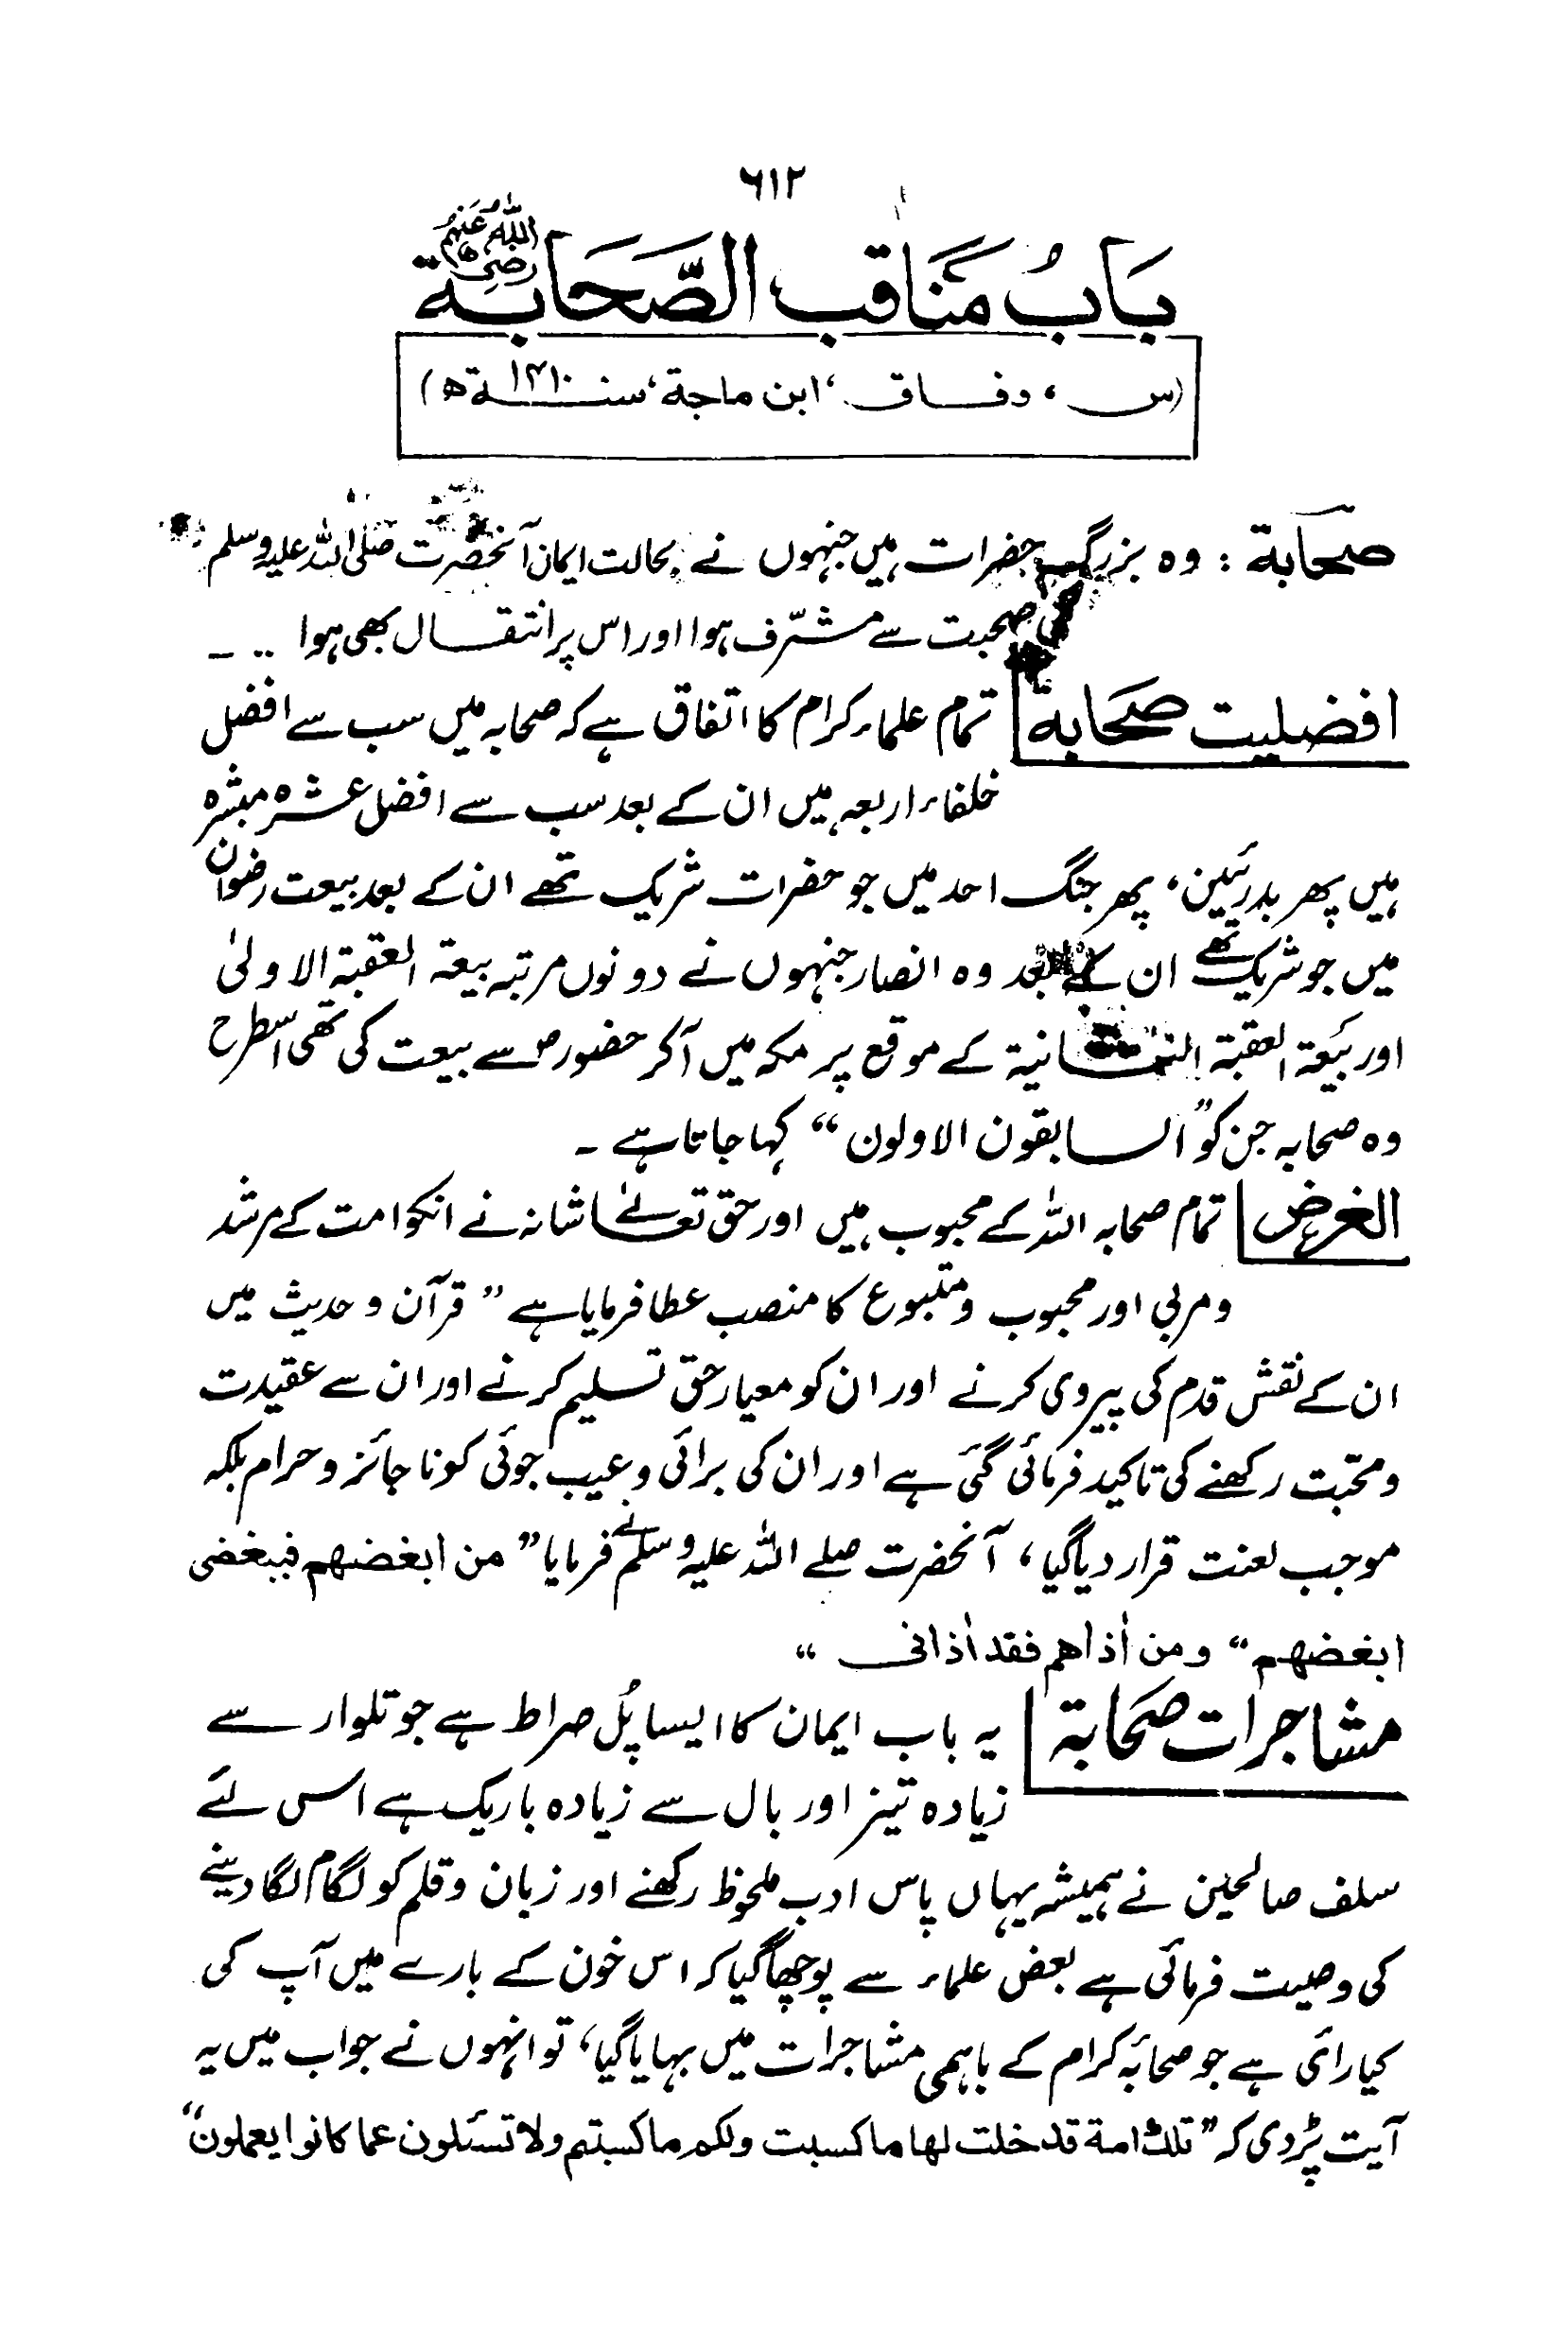 ٦١٢
بَابُ مَنَاقِبِ الصَّحَابَة رضی اللہ عنہم
(س، وفاق، ابن ماجة، سنة ١٤١٠ھ)
صحابة : وہ بزرگ حضرات ہیں جنہوں نے بحالت ایمان آنحضرت صلی اللہ علیہ وسلم
کی صحبت سے مشرّف ہوا اور اس پر انتقال بھی ہوا ۔۔ ۔
افضلیت صحابة تمام علماء کرام کا اتفاق ہے کہ صحابہ میں سب سے افضل
خلفاء اربعہ ہیں ان کے بعد سب سے افضل عشرہ مبشرہ
ہیں پھر بدرئیین، پھر جنگ احد میں جو حضرات شریک تھے ان کے بعد بیعت رضوان
میں جو شریک تھے ان کے بعد وہ انصار جنہوں نے دونوں مرتبہ بیعۃ العقبۃ الاولیٰ
اور بیَعۃ العقبۃ الثانیۃ کے موقع پر مکہ میں آکر حضورؐ سے بیعت کی تھی اسطرح
وہ صحابہ جن کو ”السابقون الاولون“ کہا جاتا ہے ۔
الغرض تمام صحابہ اللہ کے محبوب ہیں اور حق تعالےٰ شانہ نے انکو امت کے مرشد
ومربی اور محبوب ومتبوع کا منصب عطا فرمایا ہے ” قرآن وحدیث میں
ان کے نقش قدم کی پیروی کرنے اور ان کو معیار حق تسلیم کرنے اور ان سے عقیدت
ومحبّت رکھنے کی تاکید فرمائی گئی ہے اور ان کی برائی وعیب جوئی کو ناجائز وحرام بلکہ
موجب لعنت قرار دیا گیا، آنحضرت صلے اللہ علیہ وسلم نے فرمایا ” من ابغضهم فببغضی
ابغضهم“ ومن اٰذاهم فقد اٰذانی “
مشاجرات صحَابة یہ باب ایمان کا ایسا پُل صراط ہے جو تلوار سے
زیادہ تیز اور بال سے زیادہ باریک ہے اسی لئے
سلف صالحین نے ہمیشہ یہاں پاس ادب ملحوظ رکھنے اور زبان وقلم کو لگام لگا دینے
کی وصیت فرمائی ہے بعض علماء سے پوچھا گیا کہ اس خون کے بارے میں آپ کی
کیا رائی ہے جو صحابۂ کرام کے باہمی مشاجرات میں بہایا گیا، تو انہوں نے جواب میں یہ
آیت پڑدی کہ ”تلك امة قد خلت لها ما كسبت ولكم ما كسبتم ولا تسئلون عما كانوا يعملون“